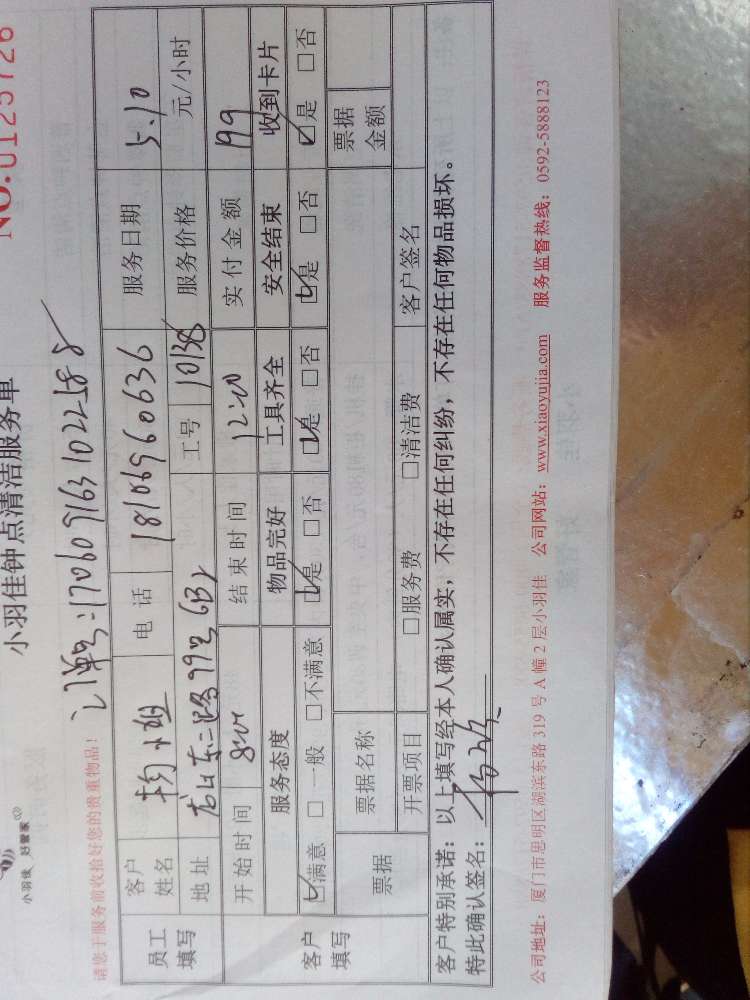 小羽佳 好管家
小羽佳钟点清洁服务单
NO.0125726
请您于服务前收拾好您的贵重物品！
订单号:1706091631022588
员工填写 客户姓名 小姐 电话 18106960636 服务日期 5.10
地址 99号6B2 工号 10138 服务价格 元/小时
开始时间 8:00 结束时间 12:00 实付金额 199
客户填写 服务态度 物品完好 工具齐全 安全结束 收到卡片
☑满意 □一般 □不满意 ☑是 □否 ☑是 □否 ☑是 □否 ☑是 □否
票据 票据名称 票据金额
开票项目 □服务费 □清洁费 客户签名
客户特别承诺：以上填写经本人确认属实，不存在任何纠纷，不存在任何物品损坏。
特此确认签名：
公司地址：厦门市思明区湖滨东路 319 号 A 幢 2 层小羽佳 公司网站：www.xiaoyujia.com 服务监督热线：0592-5888123